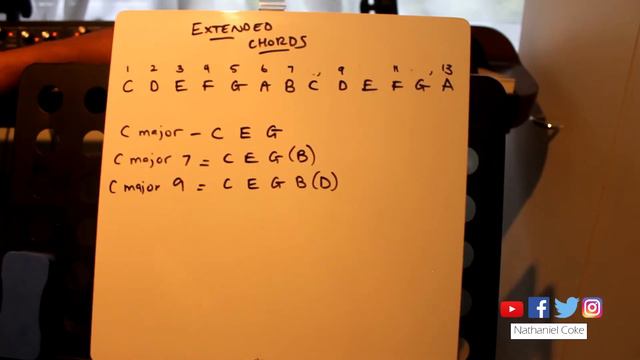 EXTENDED
CHORDS
1 2 3 4 5 6 7 9 11 13
C D E F G A B C D E F G A
C major - C E G
C major 7 = C E G (B)
C major 9 = C E G B (D)
Nathaniel Coke